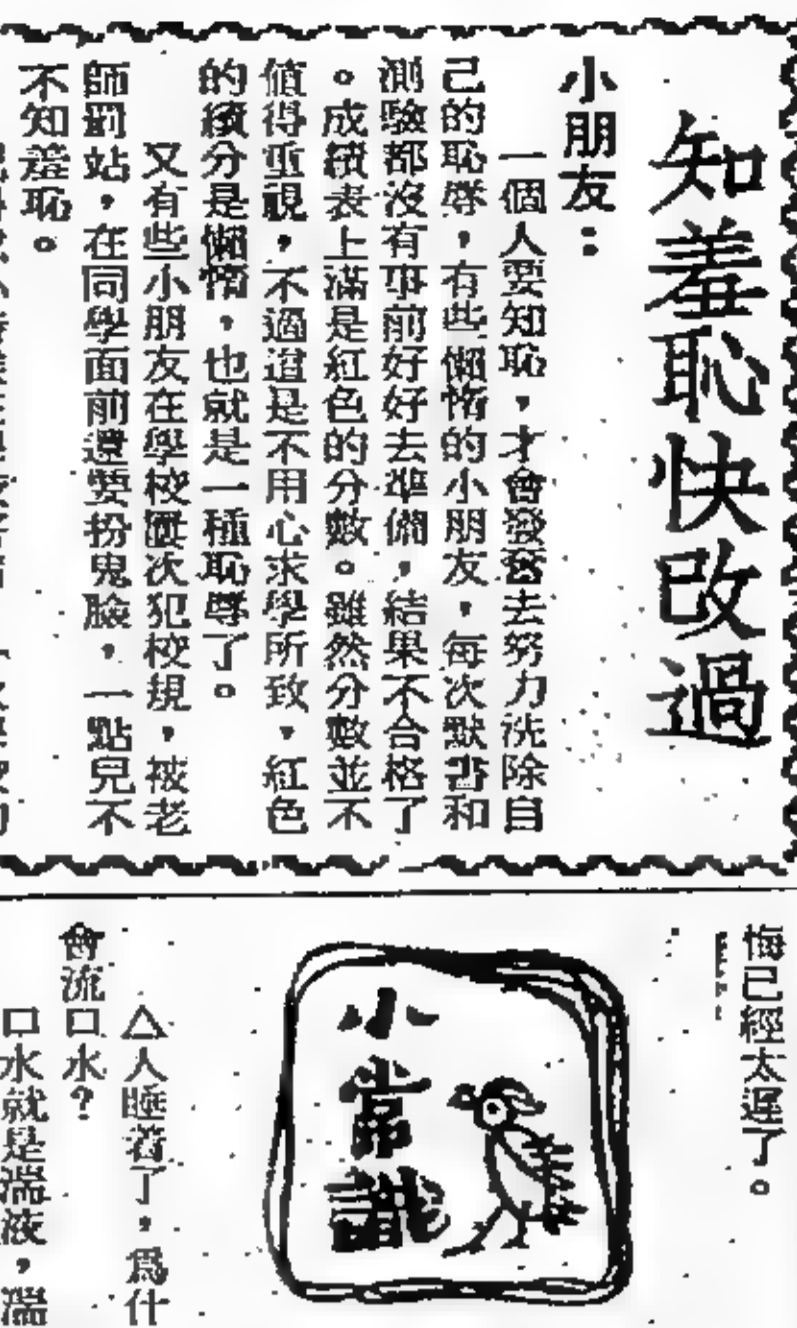 知羞恥快改過
小朋友：
一個人要知恥，才會發奮去努力洗除自
己的恥辱，有些懶惰的小朋友，每次默書和
測驗都沒有事前好好去準備，結果不合格了
。成績表上滿是紅色的分數。雖然分數並不
值得重視，不過這是不用心求學所致，紅色
的績分是懶惰，也就是一種恥辱了。
又有些小朋友在學校屢次犯校規，被老
師罰站，在同學面前還要扮鬼臉，一點兒不
不知羞恥。
悔已經太遲了。
小常識
△人睡着了，爲什
會流口水？
口水就是湍液，湍